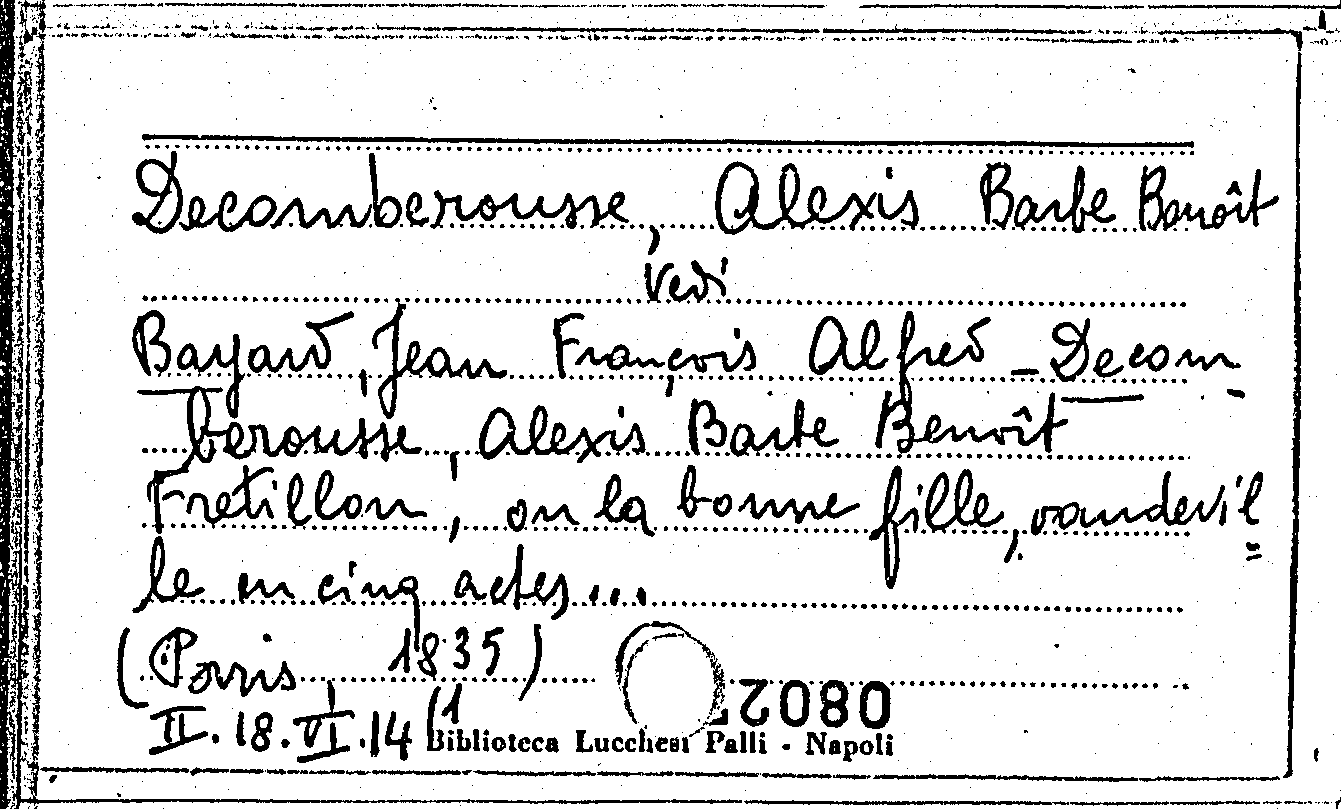 Decomberousse, Alexis Barbe Benoît
Vedi
Bayard, Jean François Alfred - Decom-
berousse, Alexis Barbe Benoît
Fretillon, ou la bonne fille, vaudevil=
le en cinq actes...
(Paris, 1835)
II.18.VI.14(1
Biblioteca Lucchesi Palli - Napoli